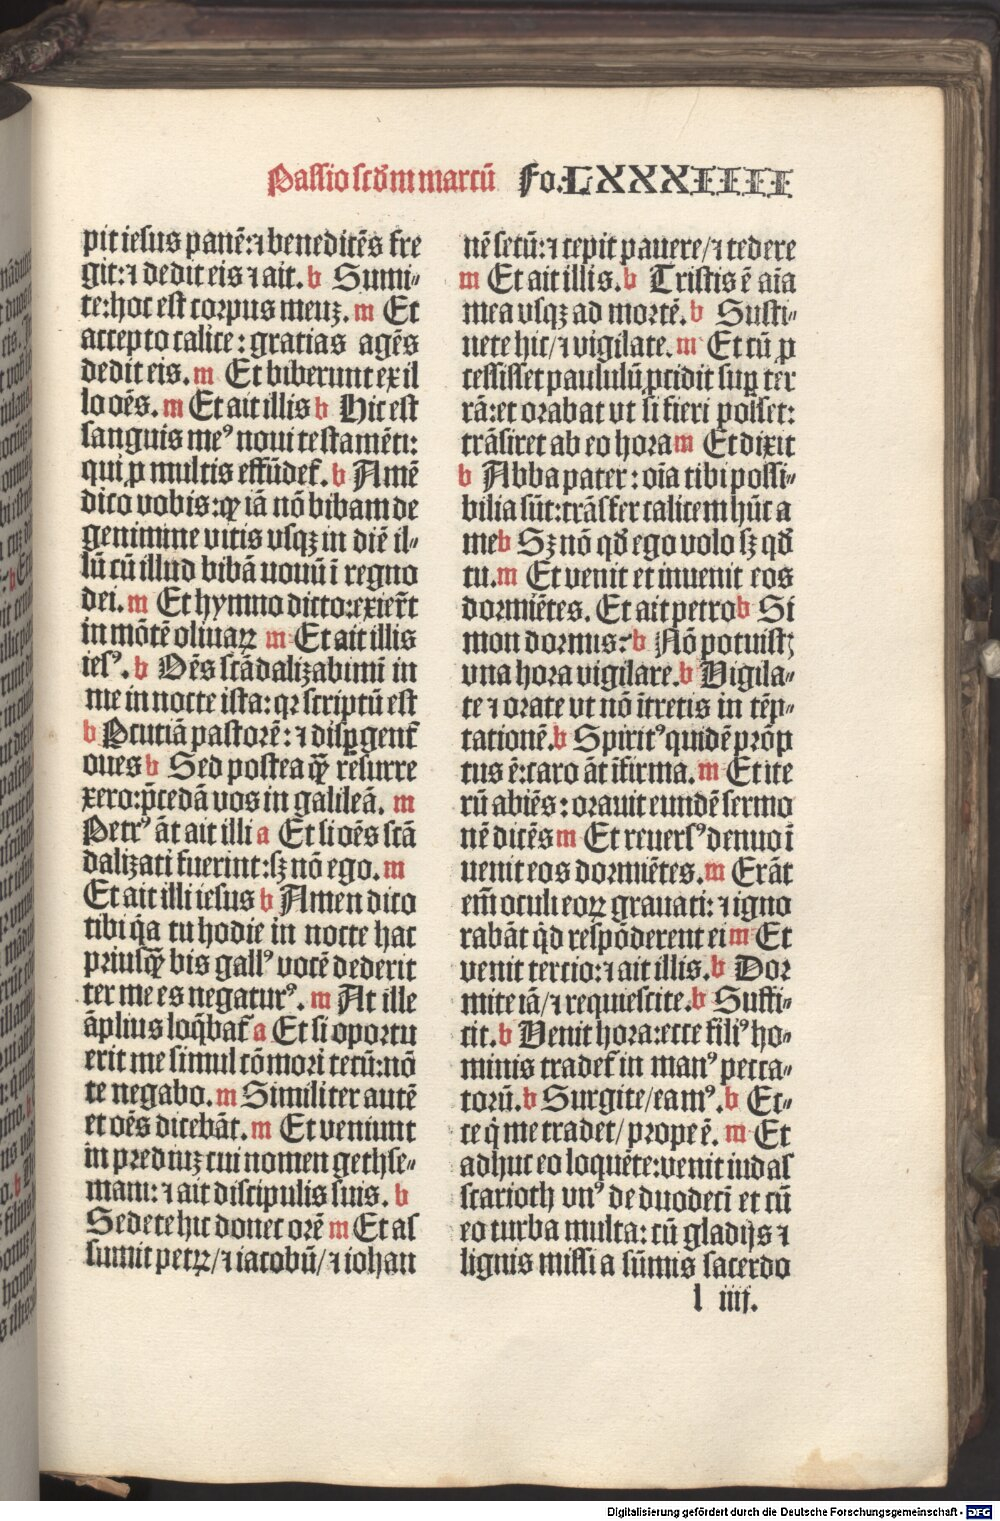 Passio scdm marcū Fo. LXXXIIIII
pit iesus panē: ⁊ benedicēs fre
git: ⁊ dedit eis ⁊ ait. b Sumi-
te: hoc est corpus meuz. m Et
accepto calice: gratias agēs
dedit eis. m Et biberunt ex il
lo oēs. m Et ait illis b Hic est
sanguis meꝰ noui testamēti:
qui ꝓ multis effūdet̄. b Amē
dico vobis: ꝙ iā nō bibam de
genimine vitis vsqꝫ in diē il-
lū cū illud bibā nouū ī regno
dei. m Et hymno dicto: exier̄t
in mōtē oliuaꝝ m Et ait illis
iesꝰ. b Oēs scādalizabimī in
me in nocte ista: qꝛ scriptū est
b Pcutiā pastorē: ⁊ disꝑgent̄
oues b Sed postea qꝫ̄ resurre
xero: p̄cedā vos in galileā. m
Petrꝰ āt ait illi a Et si oēs scā
dalizati fuerint: sꝫ nō ego. m
Et ait illi iesus b Amen dico
tibi q̄a tu hodie in nocte hac
priusqꝫ̄ bis gallꝰ vocē dederit
ter me es negaturꝰ. m At ille
āplius loq̄bat̄ a Et si oportu
erit me simul cōmori tecū: nō
te negabo. m Similiter autē
et oēs dicebāt. m Et veniunt
in prediuꝫ cui nomen gethse-
mani: ⁊ ait discipulis suis. b
Sedete hic donec orē m Et as
sumit petrꝝ/ ⁊ iacobū/ ⁊ iohan
nē secū: ⁊ cepit pauere/ ⁊ tedere
m Et ait illis. b Tristis ē aīa
mea vsqꝫ ad mortē. b Susti-
nete hic/ ⁊ vigilate. m Et cū ꝓ
cessisset paululū ꝓcidit suꝑ ter
rā: et orabat vt si fieri posset:
trāsiret ab eo hora m Et dixit
b Abba pater: oīa tibi possi-
bilia sūt: trāsfer calicem hūc a
me b Sꝫ nō qd̄ ego volo sꝫ qd̄
tu. m Et venit et inuenit eos
dormiētes. Et ait petro b Si
mon dormis? b Nō potuistꝫ
vna hora vigilare. b Vigila-
te ⁊ orate vt nō ītretis in tēp-
tationē. b Spiritꝰ quidē prōp
tus ē: caro āt īfirma. m Et ite
rū abiēs: orauit eundē sermo
nē dicēs m Et reuersꝰ denuo ī
uenit eos dormiētes. m Erāt
em̄ oculi eoꝝ grauati: ⁊ igno
rabāt qd̄ respōderent ei m Et
venit tercio: ⁊ ait illis. b Dor
mite iā/ ⁊ requiescite. b Suffi-
cit. b Venit hora: ecce filiꝰ ho-
minis tradet̄ in manꝰ pecca-
torū. b Surgite/ eamꝰ. b Ec-
ce q̄ me tradet/ prope ē. m Et
adhuc eo loquēte: venit iudas
scarioth vnꝰ de duodecī et cū
eo turba multa: cū gladijs ⁊
lignis missi a sūmis sacerdo
l iiij.
Digitalisierung gefördert durch die Deutsche Forschungsgemeinschaft - DFG